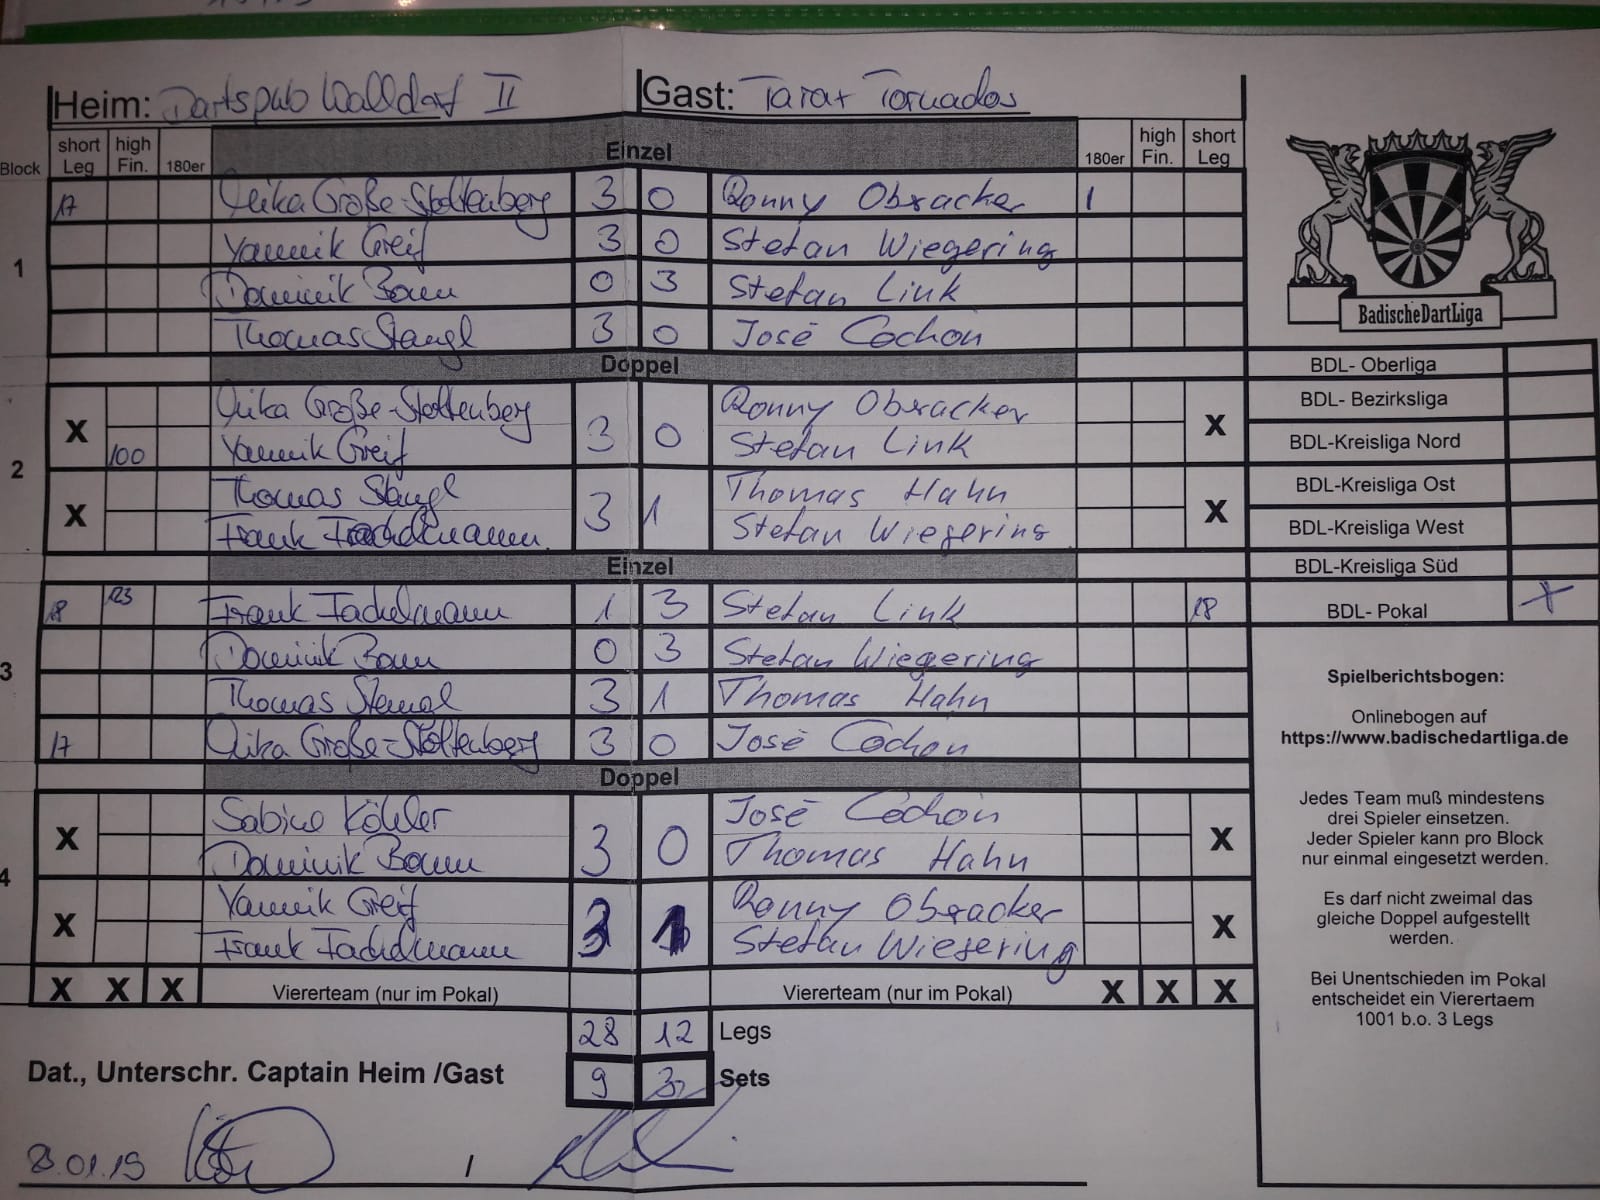 Heim: Dartspub Walldorf II Gast: Tarax Tornados
Block short Leg high Fin. 180er Einzel 180er high Fin. short Leg
1
17 Anika Große-Stoltenberg 3 0 Ronny Obracker 1
Yannik Greif 3 0 Stefan Wiegering
Dominik Bonn 0 3 Stefan Link
Thomas Stangl 3 0 José Cochon
Doppel
2
X Anika Große-Stoltenberg 3 0 Ronny Obracker X
100 Yannik Greif Stefan Link
X Thomas Stangl 3 1 Thomas Hahn X
Frank Fackelmann Stefan Wiegering
Einzel
3
18 123 Frank Fackelmann 1 3 Stefan Link 18
Dominik Bonn 0 3 Stefan Wiegering
Thomas Stangl 3 1 Thomas Hahn
17 Anika Große-Stoltenberg 3 0 José Cochon
Doppel
4
X Sabine Köhler 3 0 José Cochon X
Dominik Bonn Thomas Hahn
X Yannik Greif 3 1 Ronny Obracker X
Frank Fackelmann Stefan Wiegering
X X X Viererteam (nur im Pokal) Viererteam (nur im Pokal) X X X
28 12 Legs
Dat., Unterschr. Captain Heim /Gast 9 3 Sets
8.01.19 /
BadischeDartLiga
BDL- Oberliga
BDL- Bezirksliga
BDL-Kreisliga Nord
BDL-Kreisliga Ost
BDL-Kreisliga West
BDL-Kreisliga Süd
BDL- Pokal X
Spielberichtsbogen:
Onlinebogen auf
https://www.badischedartliga.de
Jedes Team muß mindestens
drei Spieler einsetzen.
Jeder Spieler kann pro Block
nur einmal eingesetzt werden.
Es darf nicht zweimal das
gleiche Doppel aufgestellt
werden.
Bei Unentschieden im Pokal
entscheidet ein Vierertaem
1001 b.o. 3 Legs